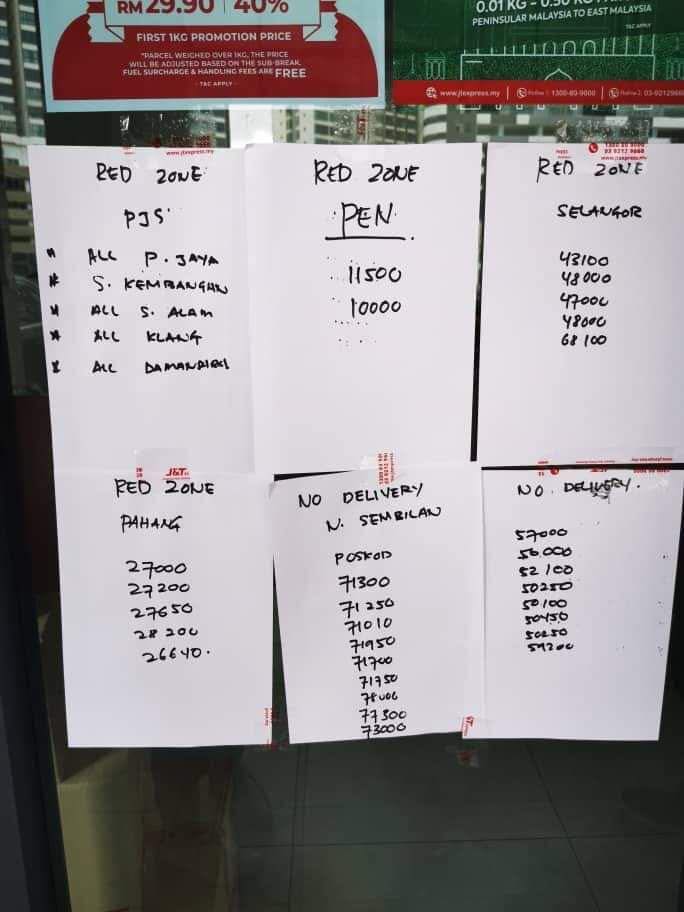 RM 29.90 40%
FIRST 1KG PROMOTION PRICE
*PARCEL WEIGHED OVER 1KG, THE PRICE
WILL BE ADJUSTED BASED ON THE SUB-BREAK.
FUEL SURCHARGE & HANDLING FEES ARE FREE
- T&C APPLY -
0.01 KG - 0.50 KG
PENINSULAR MALAYSIA TO EAST MALAYSIA
T&C APPLY
www.jtexpress.my Hotline 1: 1300-80-9000 Hotline 2: 03-9212966
www.jtexpress.my
RED ZONE
PJS
* ALL P. JAYA
* S. KEMBANGAN
* ALL S. ALAM
* ALL KLANG
* ALL DAMANSARA
RED ZONE
PEN
11500
10000
RED ZONE
SELANGOR
43100
48000
47000
48000
68100
J&T
RED ZONE
PAHANG
27000
27200
27650
28200
26640.
NO DELIVERY
N. SEMBILAN
POSKOD
71300
71250
71010
71950
71700
71750
77300
73000
NO. DELIVERY.
57000
52100
50250
50100
50450
50250